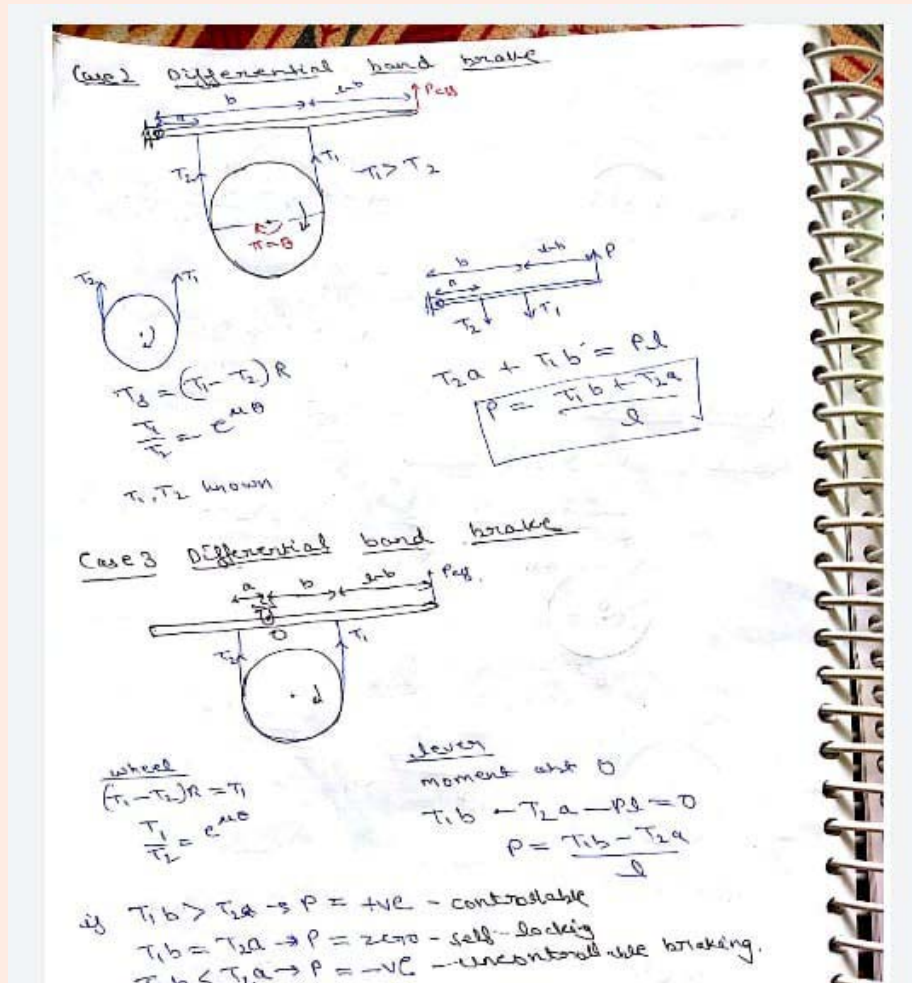 Case 2 Differential band brake
b l-b Peff
a
T2 T1 T1 > T2
π=θ
T2 T1
b l-b P
a
T2 T1
Td = (T1 - T2) R
T1/T2 = e^μθ
T2a + T1b = Pl
P = (T1b + T2a)/l
T1, T2 known
Case 3 Differential band brake
a b l-b Peff.
O
T2 T1
wheel
(T1 - T2)R = T1
T1/T2 = e^μθ
lever
moment abt O
T1b - T2a - Pl = 0
P = (T1b - T2a)/l
if T1b > T2a → P = +ve - controllable
T1b = T2a → P = zero - self-locking
T1b < T2a → P = -ve - uncontrollable braking.